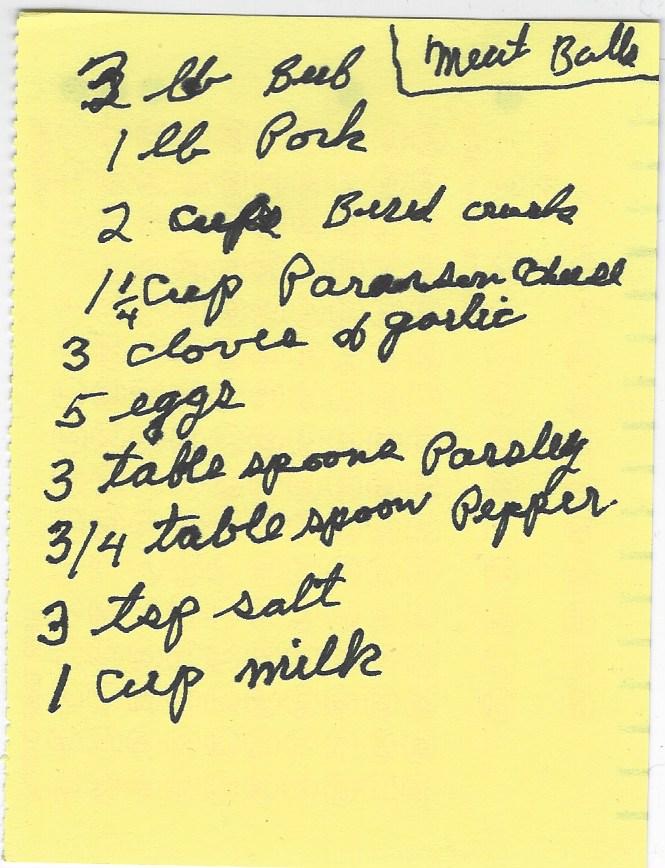 Meat Balls
3 lb Beef
1 lb Pork
2 cups Bread crumbs
1 1/4 Cup Paramsan Cheese
3 cloves of garlic
5 eggs
3 table spoons Parsley
3/4 table spoon Pepper.
3 tsp salt
1 cup milk